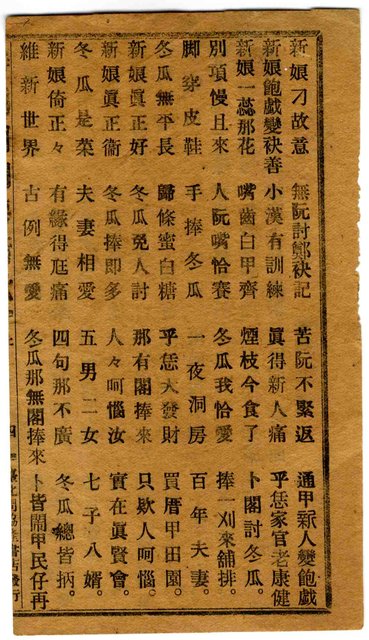 新娘刁故意　無阮討鄭袂記　苦阮不緊返　通甲新人變鮑戲
新娘鮑戲變袂善　小漢有訓練　眞得新人痛　乎恁家官老康健
新娘一蕊那花　嘴齒白甲齊　煙枝今食了　卜閣討冬瓜。
別項慢且來　人阮嘴恰賽　冬瓜我恰愛　捧一刈來舖排。
脚穿皮鞋　手捧冬瓜　一夜洞房　百年夫妻。
冬瓜無平長　歸條蜜白糖　乎恁大發財　買厝甲田園。
新娘眞正好　冬瓜免人討　那有閣捧來　只欸人呵惱。
新娘眞正衛　冬瓜捧即多　人々呵惱汝　實在眞賢會。
冬瓜是菜　夫妻相愛　五男二女　七子八婿。
新娘倚正々　有緣得尪痛　四句那不廣　冬瓜總皆抦。
維新世界　古例無愛　冬瓜那無閣捧來　卜皆鬧甲民仔再
四　書店發行